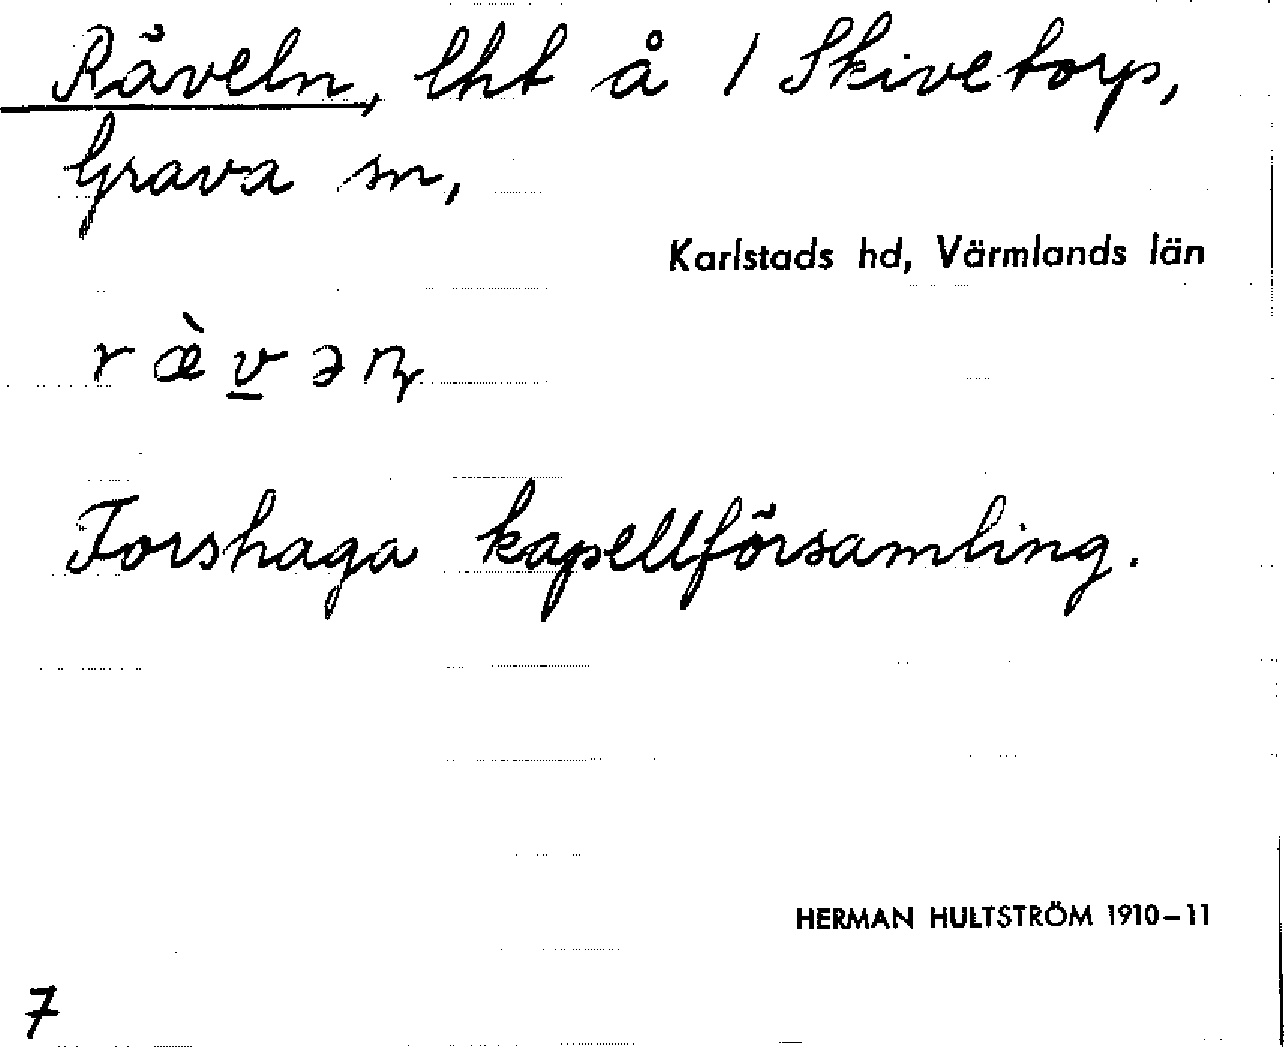 Räveln, lht å 1 Skivetorp,
Grava sn,
Karlstads hd, Värmlands län
r æ̀ v̲ ə ɳ
Forshaga kapellförsamling.
HERMAN HULTSTRÖM 1910–11
7